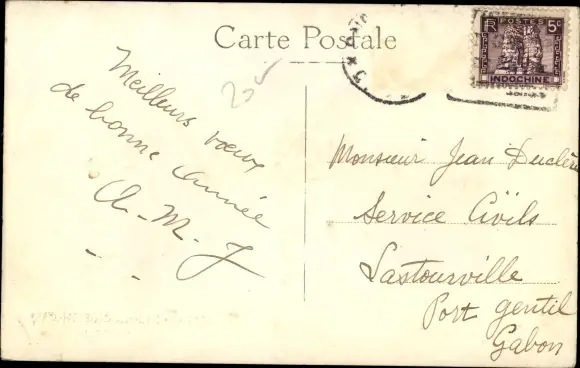 Carte Postale
RF POSTES 5c
INDOCHINE
205
Meilleurs vœux
de bonne année
A-M-J
Monsieur Jean Duclère
Service Civils
Lastourville
Port gentil
Gabon